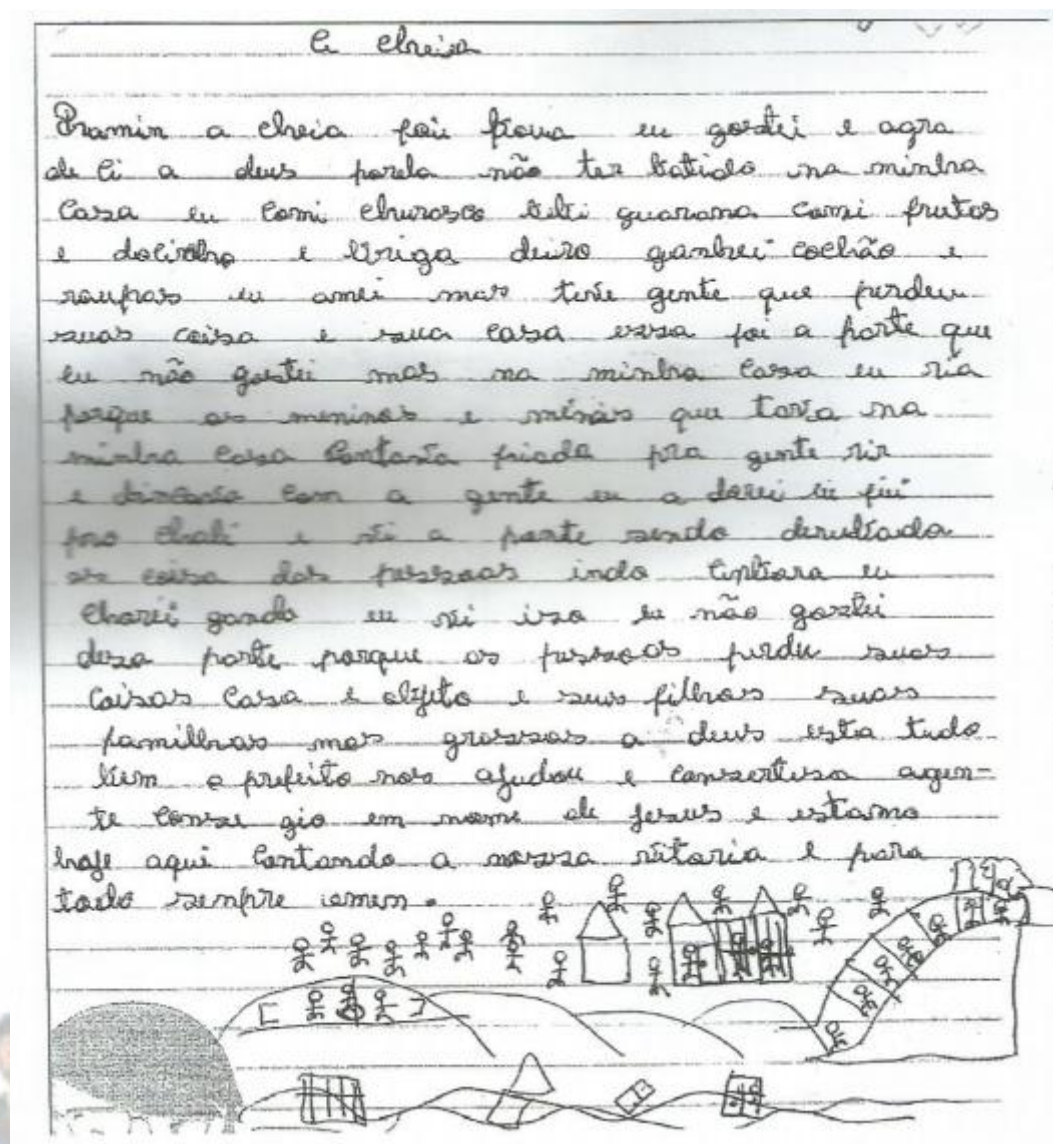 A cheia
Pramin a cheia foi boua eu gostei e agra
de ci a deus porela não ter batido na minha
casa eu comi churosco bebi guarana comi frutas
e docinho e briga deiro ganhei cochão e
roupas eu amei mas teve gente que perdeu
suas coisa e sua casa essa foi a parte que
eu não gostei mas na minha casa eu ria
porque os meninos e menas que tava na
minha casa contava piada pra gente rir
e brincava com a gente eu a dorei eu fui
pro chali e vi a ponte sendo derubada
as coisa das pessoas indo eu
chorei gando eu vi iso eu não gostei
desa parte porque as pessoas perdeu suas
coisas casa e objeto e seus filhos suas
familhas mas grassas a deus esta tudo
bem o prefeito nos ajudou e concerteza agen-
te conse gio em nome de jesus e estamo
hoje aqui contando a nossa vitoria e para
todo sempre amem.